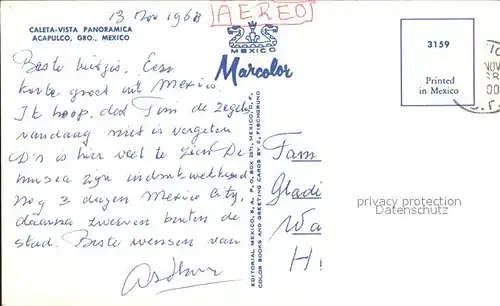 13 Nov 1968
AEREO
CALETA-VISTA PANORAMICA
ACAPULCO, GRO., MEXICO
MEXICO
Marcolor
3159
Printed
in Mexico
NOV
Beste luitjes. Een
korte groet uit Mexico.
Ik hoop dat Tim de zegels
vandaag niet is vergeten
is hier veel te zien De
musea zijn indrukwekkend
nog 3 dagen Mexico City,
daarna zwerven buiten de
stad. Beste wensen van
EDITORIAL MEXICO, S. A. P. O. BOX 2671, MEXICO, D. F.
COLOR BOOKS AND GREETING CARDS BY E. FISCHGRUND
Fam
Gladi
Wa
H
privacy protection
Datenschutz